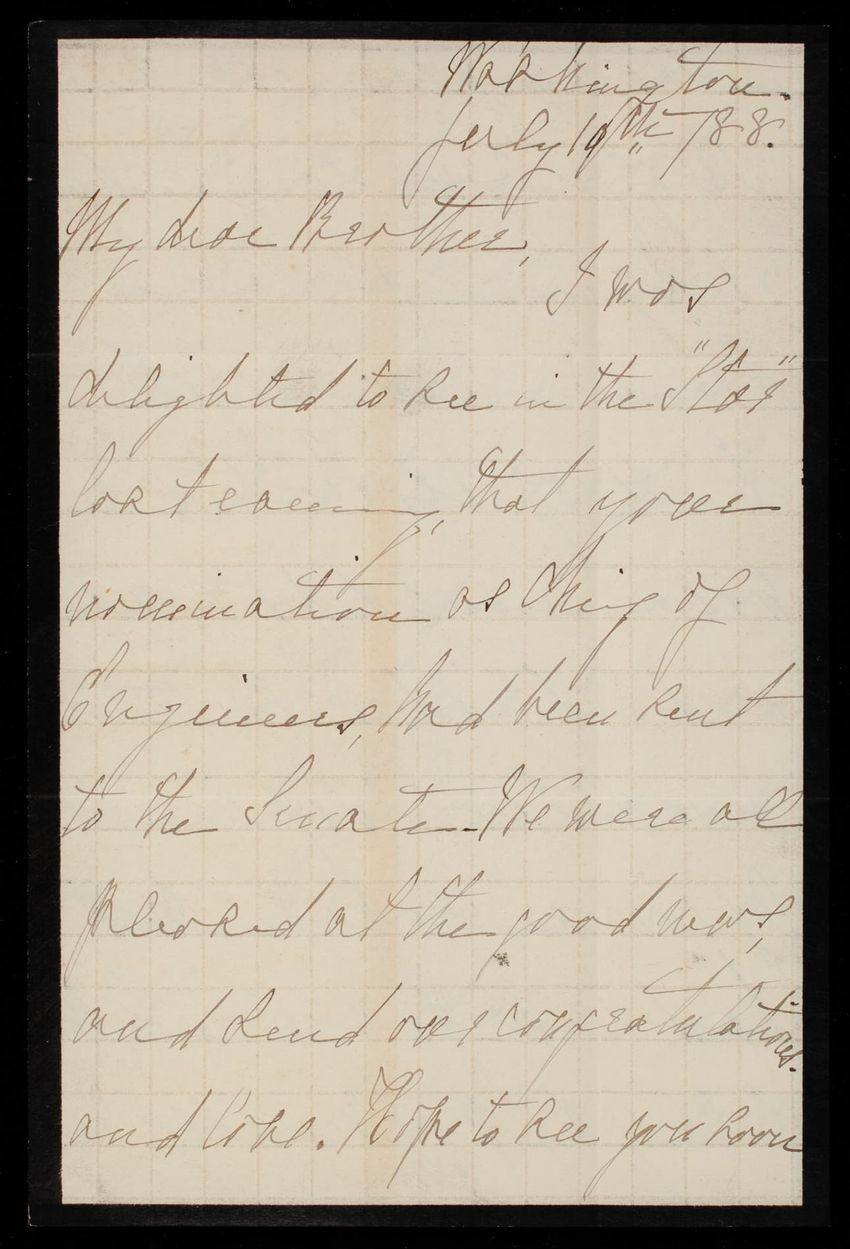 Washington.
July 19th /88.
My dear Brother,
I was
delighted to see in the "Star"
last evening, that your
nomination as Chief of
Engineers, had been sent
to the Senate. We were all
pleased at the good news,
and send our congratulations.
and love. Hope to see you soon